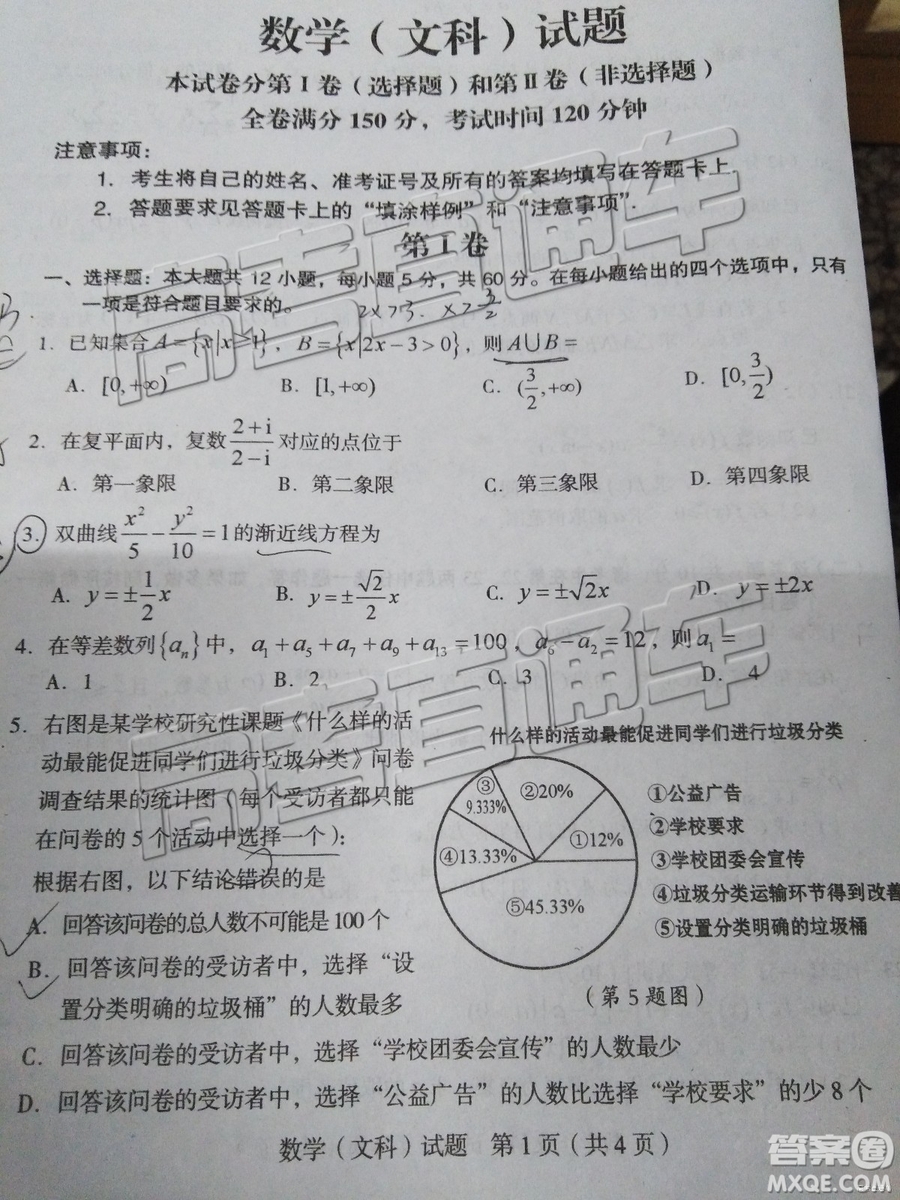 数学（文科）试题
本试卷分第Ⅰ卷（选择题）和第Ⅱ卷（非选择题）
全卷满分150分，考试时间120分钟
注意事项：
1．考生将自己的姓名、准考证号及所有的答案均填写在答题卡上．
2．答题要求见答题卡上的“填涂样例”和“注意事项”．
第Ⅰ卷
一、选择题：本大题共12小题，每小题5分，共60分。在每小题给出的四个选项中，只有
一项是符合题目要求的。 2x>3. x>3/2
1．已知集合A={x|x≥1}，B={x|2x−3>0}，则A∪B=
A．[0,+∞) B．[1,+∞) C．(3/2,+∞) D．[0,3/2)
2．在复平面内，复数(2+i)/(2−i)对应的点位于
A．第一象限 B．第二象限 C．第三象限 D．第四象限
3．双曲线x²/5−y²/10=1的渐近线方程为
A．y=±1/2x B．y=±√2/2x C．y=±√2x D．y=±2x
4．在等差数列{aₙ}中，a₁+a₅+a₇+a₉+a₁₃=100，a₆−a₂=12，则a₁=
A．1 B．2 C．3 D．4
5．右图是某学校研究性课题《什么样的活
动最能促进同学们进行垃圾分类》问卷
调查结果的统计图（每个受访者都只能
在问卷的5个活动中选择一个）：
根据右图，以下结论错误的是
A．回答该问卷的总人数不可能是100个
B．回答该问卷的受访者中，选择“设
置分类明确的垃圾桶”的人数最多
C．回答该问卷的受访者中，选择“学校团委会宣传”的人数最少
D．回答该问卷的受访者中，选择“公益广告”的人数比选择“学校要求”的少8个
什么样的活动最能促进同学们进行垃圾分类
③
9.333%
②20%
①12%
④13.33%
⑤45.33%
①公益广告
②学校要求
③学校团委会宣传
④垃圾分类运输环节得到改善
⑤设置分类明确的垃圾桶
（第5题图）
数学（文科）试题 第1页（共4页）
高考直通车
高考直通车
答案圈
MXQE.COM